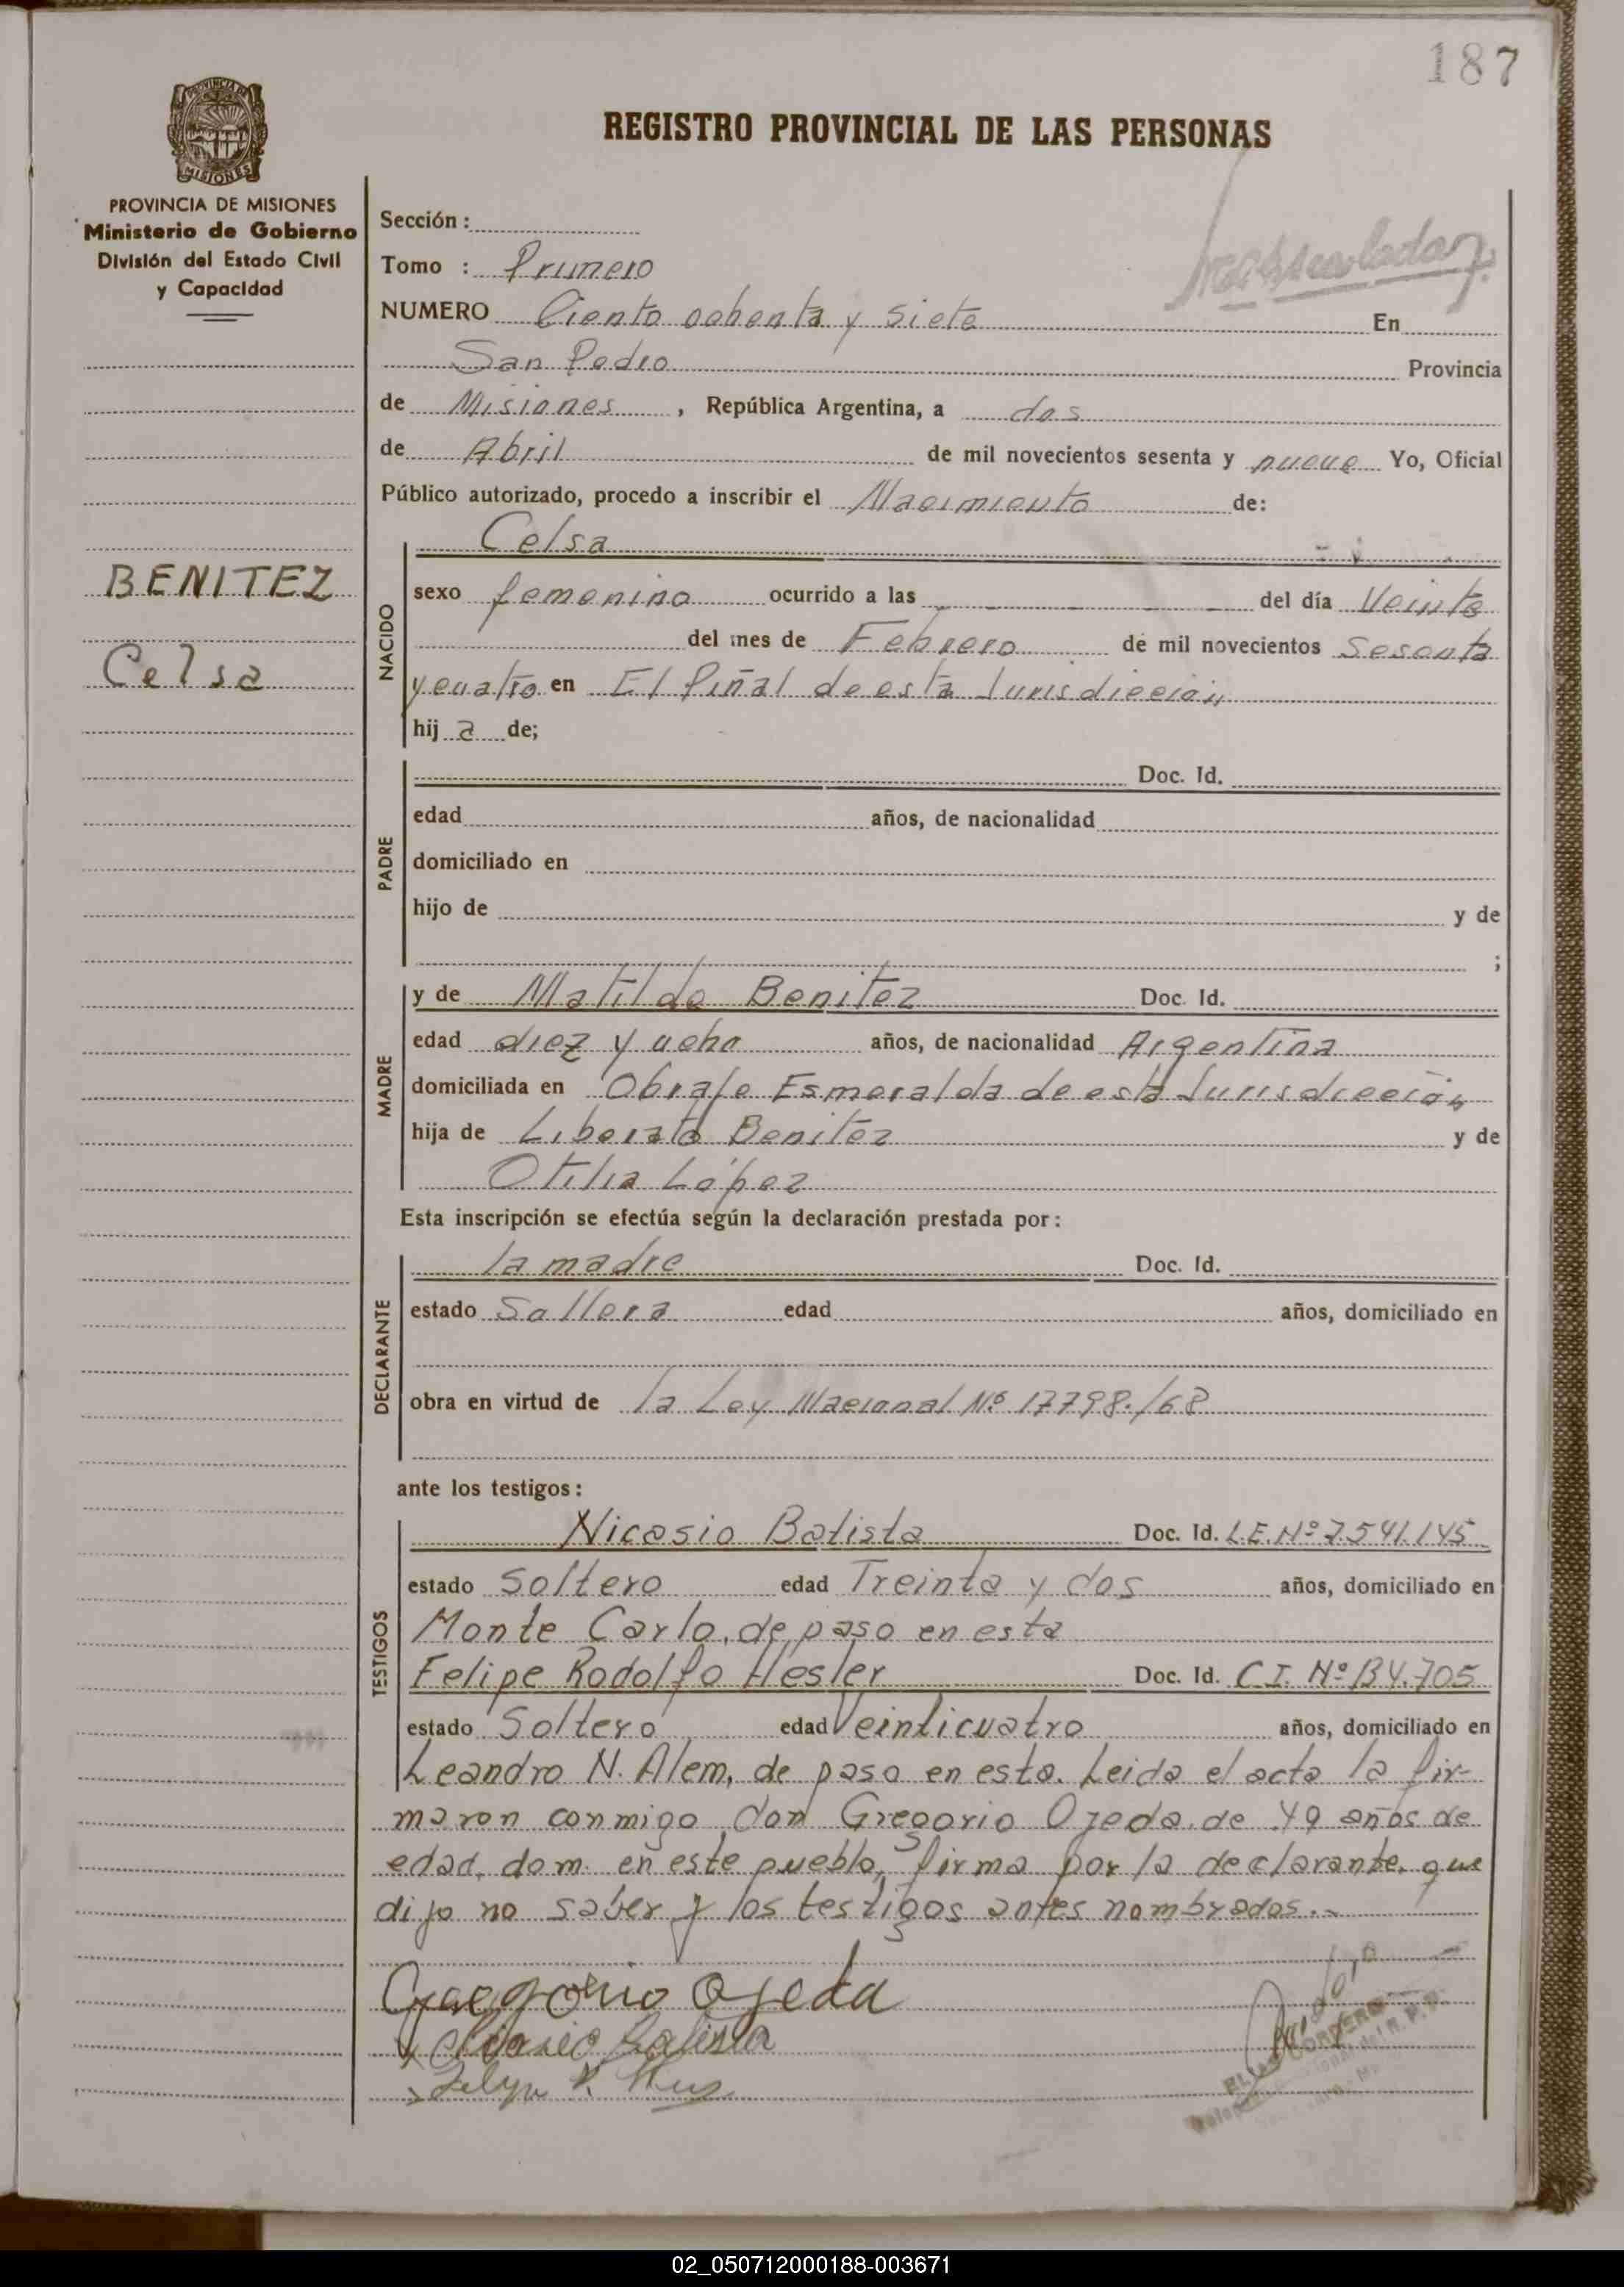 187
PROVINCIA DE
MISIONES
REGISTRO PROVINCIAL DE LAS PERSONAS
PROVINCIA DE MISIONES
Ministerio de Gobierno
División del Estado Civil
y Capacidad
BENITEZ
Celsa
Sección:
Tomo : Primero
NUMERO Ciento ochenta y siete En
San Pedro Provincia
de Misiones, República Argentina, a dos
de Abril de mil novecientos sesenta y nueve Yo, Oficial
Público autorizado, procedo a inscribir el Nacimiento de:
NACIDO
Celsa
sexo femenino ocurrido a las del día Veinte
del mes de Febrero de mil novecientos Sesenta
y cuatro en El Piñal de esta Jurisdicción
hij a de;
PADRE
Doc. Id.
edad años, de nacionalidad
domiciliado en
hijo de y de
;
MADRE
y de Matilde Benitez Doc. Id.
edad diez y ocho años, de nacionalidad Argentina
domiciliada en Obraje Esmeralda de esta Jurisdicción
hija de Liberato Benitez y de
Otilia López
Esta inscripción se efectúa según la declaración prestada por:
DECLARANTE
la madre Doc. Id.
estado Soltera edad años, domiciliado en
obra en virtud de la Ley Nacional Nº 17798./68
ante los testigos:
TESTIGOS
Nicasio Batista Doc. Id. L.E. Nº 7.541.145
estado Soltero edad Treinta y dos años, domiciliado en
Monte Carlo, de paso en esta
Felipe Rodolfo Hesler Doc. Id. C.I. Nº 134.705
estado Soltero edad Veinticuatro años, domiciliado en
Leandro N. Alem, de paso en esta. Leida el acta la fir-
maron conmigo don Gregorio Ojeda, de 49 años de
edad, dom. en este pueblo, firma por la declarante, que
dijo no saber y los testigos antes nombrados.-
Gregorio Ojeda
Nicasio Batista
Felipe R.
CORDERO
02_050712000188-003671